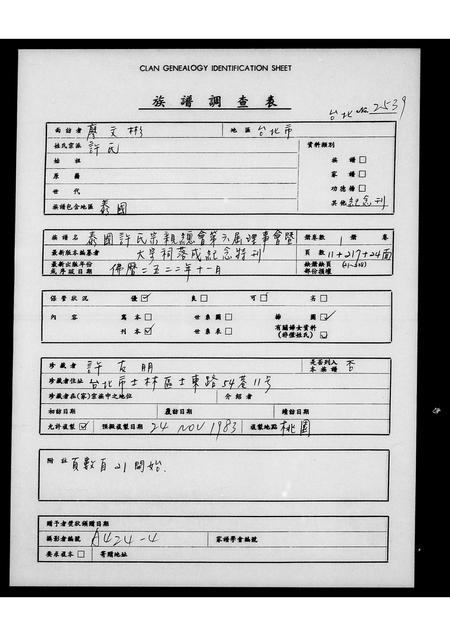 CLAN GENEALOGY IDENTIFICATION SHEET
族譜調查表
台北 No. 2539
面訪者 廖文彬 地區 台北市
姓氏宗派 許氏 資料類別
始祖 族譜 □
原籍 家譜 □
世代 功德譜 □
族譜包含地區 泰國 其他 紀念刊
族譜名 泰國許氏宗親總會第六屆理事會暨 譜卷數 1 卷
最新版本編纂者 大宗祠落成紀念特刊 頁數 11+217+24面
最新出版年份 佛曆二五二二年十一月
或序跋日期 部份損壞
保管狀況 優 ☑ 良 □ 可 □ 劣 □
內容 寫本 □ 世系圖 □ 插圖 ☑
刊本 ☑ 世系表 □ 有關婦女資料 (非僅姓氏)
珍藏者 許友明 是否列入本族譜 否
珍藏者住址 台北市士林區士東路54巷11号
珍藏者在(家)宗族中之地位 介紹者
初訪日期 覆訪日期 續訪日期
允許複製 ☑ 預擬複製日期 24 NOV 1983 複製地點 桃園
附註 頁數自21開始.
贈予者獎狀頒贈日期
攝影者編號 A424-4 家譜學會編號
要求複本 □ 寄贈地址